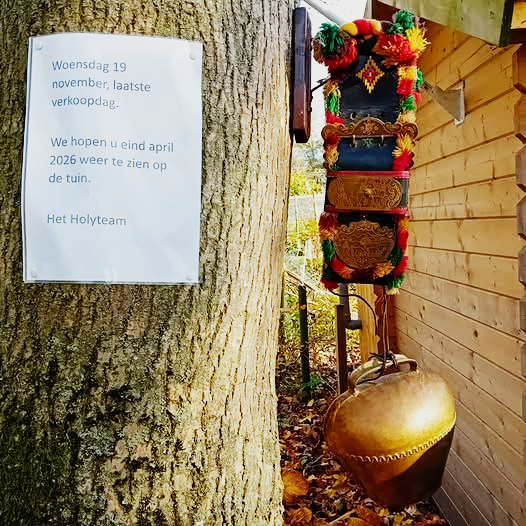 Woensdag 19
november, laatste
verkoopdag.
We hopen u eind april
2026 weer te zien op
de tuin.
Het Holyteam